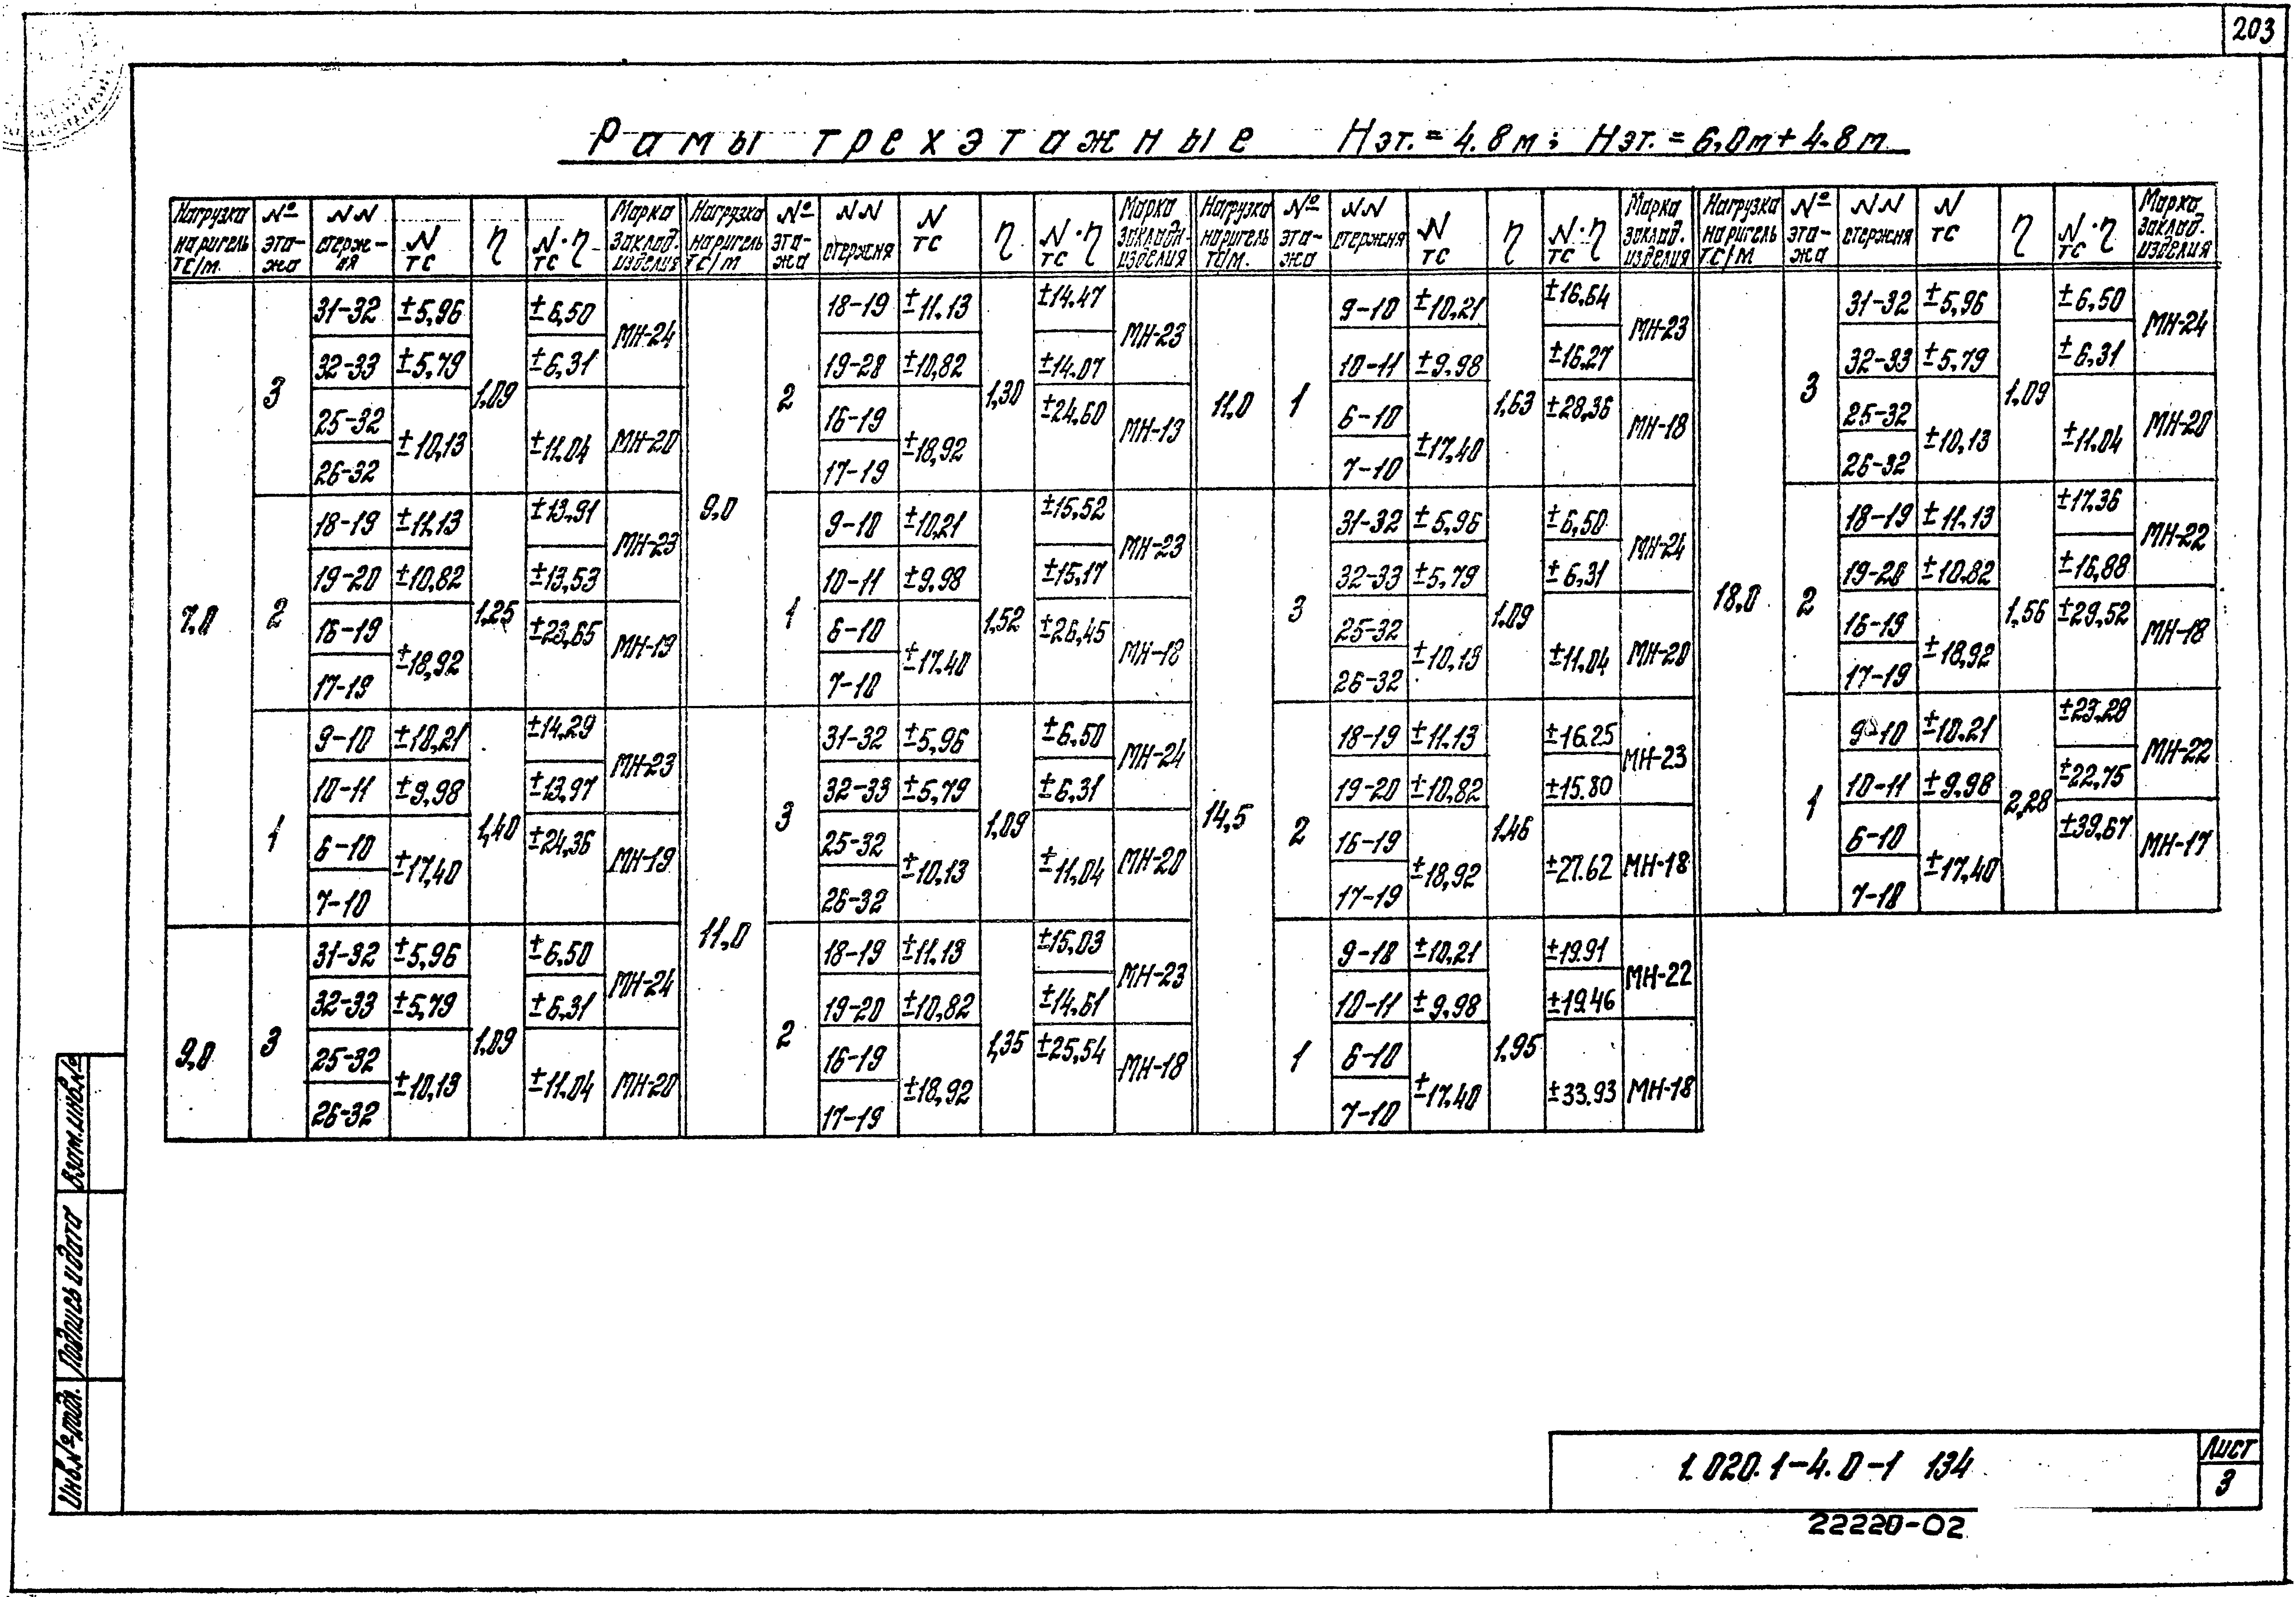 203
Рамы трехэтажные Нэт. = 4.8 м; Нэт. = 6,0 м + 4.8 м
Нагрузка на ригель тс/м. | № эта-жа | NN стерж-ня | N тс | η | N·η тс | Марка заклад. изделия | Нагрузка на ригель тс/м | № эта-жа | NN стержня | N тс | η | N·η тс | Марка закладн. изделия | Нагрузка на ригель тс/м. | № эта-жа | NN стержня | N тс | η | N·η тс | Марка заклад. изделия | Нагрузка на ригель тс/м | № эта-жа | NN стержня | N тс | η | N·η тс | Марка заклад. изделия
7,0
3 1,09
31-32 ±5,96 ±6,50 МН-24
32-33 ±5,79 ±6,31
25-32 ±10,13 ±11.04 МН-20
26-32
2 1,25
18-19 ±11.13 ±13,91 МН-23
19-20 ±10,82 ±13,53
16-19 ±18,92 ±23,65 МН-19
17-19
1 1,40
9-10 ±10,21 ±14,29 МН-23
10-11 ±9,98 ±13,97
6-10 ±17,40 ±24,36 МН-19
7-10
9,0
3 1,09
31-32 ±5,96 ±6,50 МН-24
32-33 ±5,79 ±6,31
25-32 ±10,13 ±11,04 МН-20
26-32
9,0
2 1,30
18-19 ±11.13 ±14.47 МН-23
19-20 ±10,82 ±14.07
16-19 ±18,92 ±24,60 МН-19
17-19
1 1,52
9-10 ±10,21 ±15,52 МН-23
10-11 ±9,98 ±15,17
6-10 ±17.40 ±26,45 МН-18
7-10
11,0
3 1,09
31-32 ±5,96 ±6,50 МН-24
32-33 ±5,79 ±6,31
25-32 ±10,13 ±11,04 МН-20
26-32
2 1,35
18-19 ±11.13 ±15,03 МН-23
19-20 ±10,82 ±14,61
16-19 ±18,92 ±25,54 МН-18
17-19
11,0
1 1,63
9-10 ±10,21 ±16,64 МН-23
10-11 ±9,98 ±16,27
6-10 ±17,40 ±28,36 МН-18
7-10
14,5
3 1,09
31-32 ±5,96 ±6,50 МН-24
32-33 ±5,79 ±6,31
25-32 ±10,13 ±11,04 МН-20
26-32
2 1,46
18-19 ±11.13 ±16.25 МН-23
19-20 ±10,82 ±15.80
16-19 ±18,92 ±27.62 МН-18
17-19
1 1,95
9-10 ±10,21 ±19.91 МН-22
10-11 ±9,98 ±19.46
6-10 ±17,40 ±33.93 МН-18
7-10
18,0
3 1,09
31-32 ±5,96 ±6,50 МН-24
32-33 ±5,79 ±6,31
25-32 ±10,13 ±11.04 МН-20
26-32
2 1,56
18-19 ±11.13 ±17,36 МН-22
19-20 ±10,82 ±16,88
16-19 ±18,92 ±29,52 МН-18
17-19
1 2,28
9-10 ±10.21 ±23,28 МН-22
10-11 ±9,98 ±22,75
6-10 ±17,40 ±39,67 МН-17
7-10
Взам.инв.№
Подпись и дата
Инв.№ подл.
1.020.1-4.0-1 134
Лист
3
22220-02